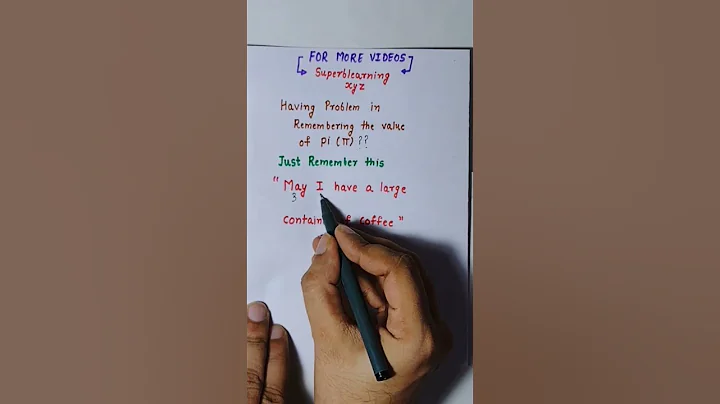 FOR MORE VIDEOS
Superblearning
xyz
Having Problem in
Remembering the value
of Pi (π) ??
Just Remember this
" May I have a large
3
of coffee "